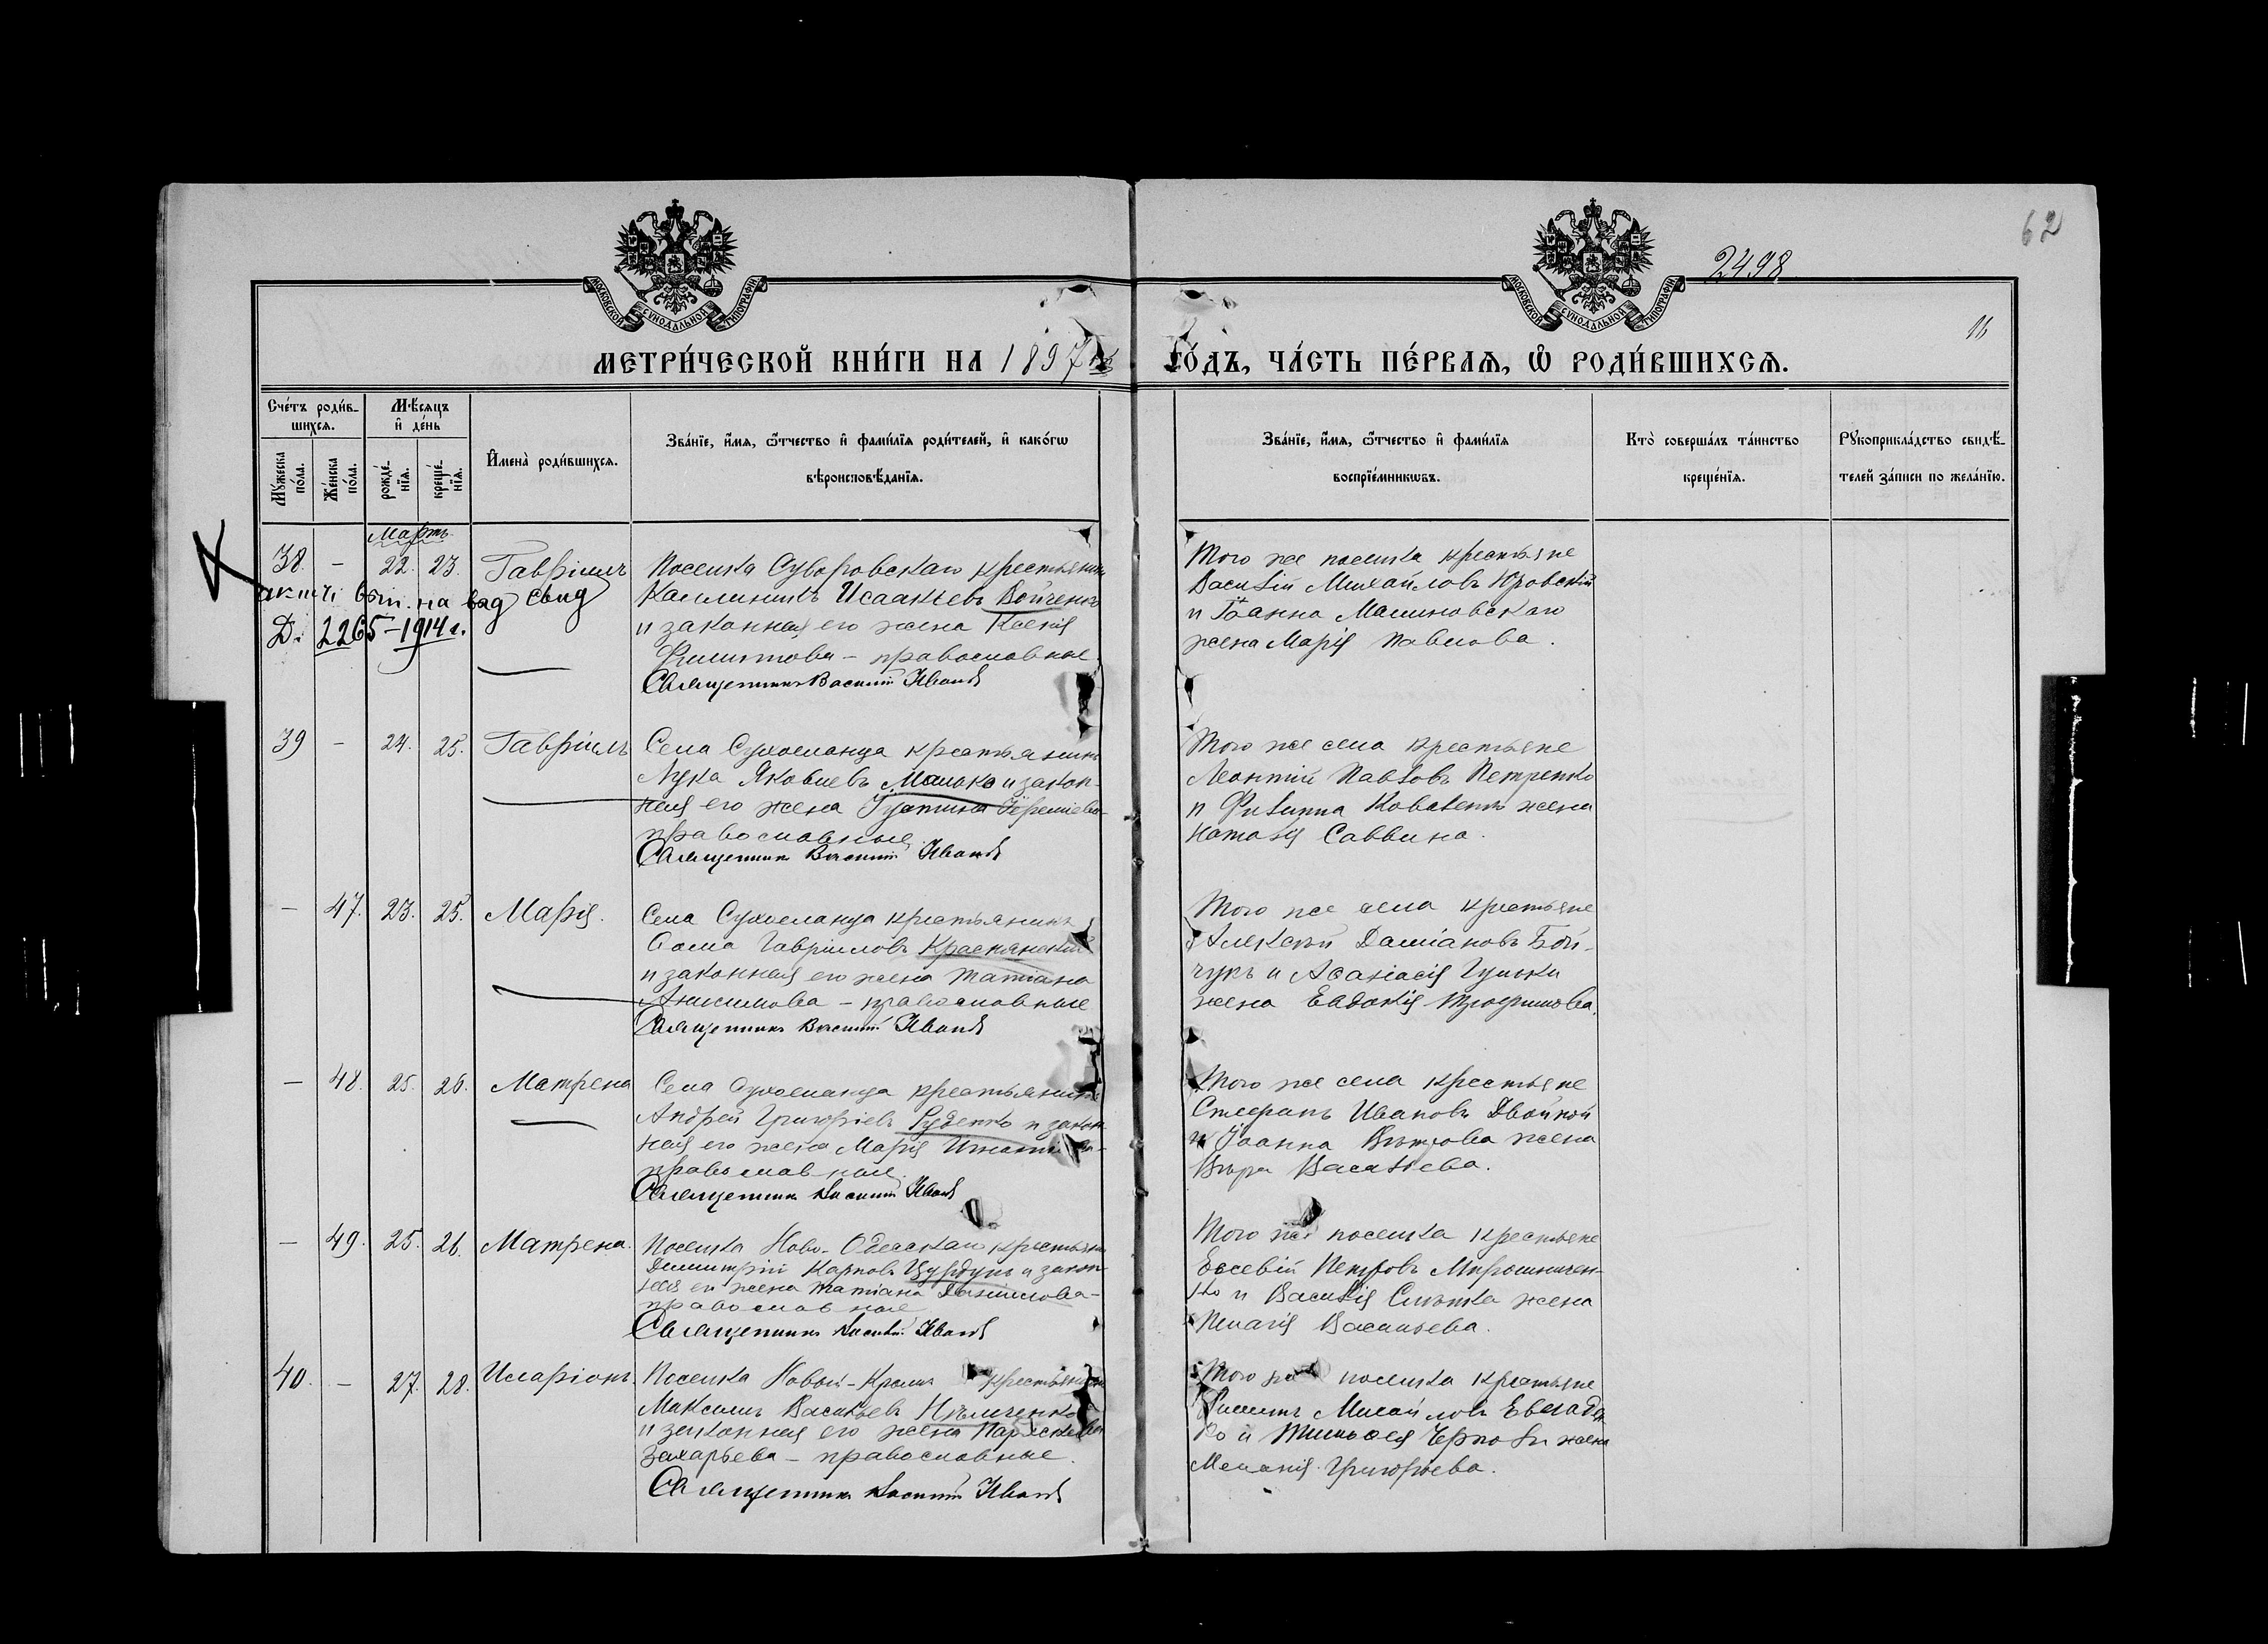 62
2498
16
МОСКОВСКОЙ СУНОДАЛЬНОЙ ТИПОГРАФІИ
МОСКОВСКОЙ СУНОДАЛЬНОЙ ТИПОГРАФІИ
МЕТРИ́ЧЕСКОЙ КНИ́ГИ НА 1897 ГО́ДЪ, ЧА́СТЬ ПЕ́РВАѦ, Ѡ РОДИ́ВШИХСѦ.
Сче́тъ роди́в-
шихсѧ.
Мꙋ́жеска
по́ла.
Же́нска
по́ла.
Мѣ́сѧцъ
и҆ де́нь
рожде́-
нїѧ.
креще́-
нїѧ.
И҆мена̀ роди́вшихсѧ.
Зва́нїе, и҆́мѧ, ѻ҆́тчество и҆ фами́лїѧ роди́телей, и҆ како́гѡ
вѣроисповѣ́данїѧ.
Зва́нїе, и҆́мѧ, ѻ҆́тчество и҆ фами́лїѧ
воспрїе́мникѡвъ.
Кто̀ соверша́лъ та́инство
креще́нїѧ.
Рꙋкоприкла́дство свидѣ́-
телей за́писи по жела́нїю.
Мартъ
38. - 22. 23. Гавріилъ
вып. на свид
Д. 2265-1914 г.
Поселка Суворовскаго крестьянинъ
Каллиникъ Исаакіевъ Войченко
и законная его жена Ксенія
Филиппова - православные
Священникъ Василий Иванов
Того же поселка крестьяне
Василій Михайловъ Юровскій
и Іоанна Малиновскаго
жена Марія Павлова.
39 - 24. 25. Гавріилъ
Села Сухоеланца крестьянинъ
Лука Яковлевъ Малько и закон-
ная его жена
православные
Священникъ Василий Иванов
Того же села крестьяне
Леонтій Павловъ Петренко
и Филиппа жена
Наталія Саввина.
- 47. 23. 25. Марія.
Села Сухоеланца крестьянинъ
Ѳома Гавріиловъ Краснянскій
и законная его жена Татіана
Анисимова - православные
Священникъ Василий Иванов
Того же села крестьяне
Алексѣй Даміановъ Бой-
чукъ и Аѳанасія Гулька
жена Евдокія Трофимова.
- 48. 25. 26. Матрена
Села Сухоеланца крестьянинъ
Андрей Григоріевъ Руденко и закон-
ная его жена Марія
православные.
Священникъ Василий Иванов
Того же села крестьяне
Стефанъ Ивановъ Двойной
и Іоанна жена
Вѣра Васильева.
- 49. 25. 26. Матрена.
Поселка Ново-Одесскаго крестьянинъ
Димитрій Карповъ и закон-
ная его жена Татіана Даніилова -
православные
Священникъ Василий Иванов
Того же поселка крестьяне
Евсевій Петровъ Мирошничен-
ко и Василія жена
Пелагія Васильева.
40. - 27. 28. Иларіонъ.
Поселка Новый-Крымъ крестьянинъ
Максимъ Васильевъ
и законная его жена Параскева
Захарьева - православные.
Священникъ Василий Иванов
Того же поселка крестьяне
Филиппъ
ко и Тимоѳея жена
Меланія Григорьева.